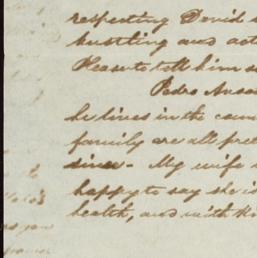 respecting David
bustling and act
Please to tell him s
Pedro
he lives in the coun
family are all pre
since - My wife
happy to say she is
health, and with